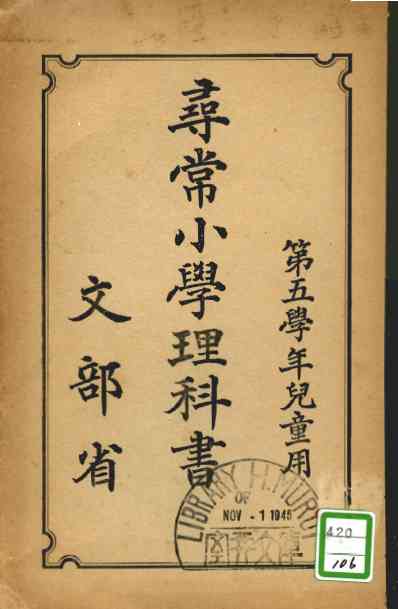 第五學年兒童用
尋常小學理科書
文部省
LIBRARY H.
OF
NOV - 1 1945
文庫
420
106